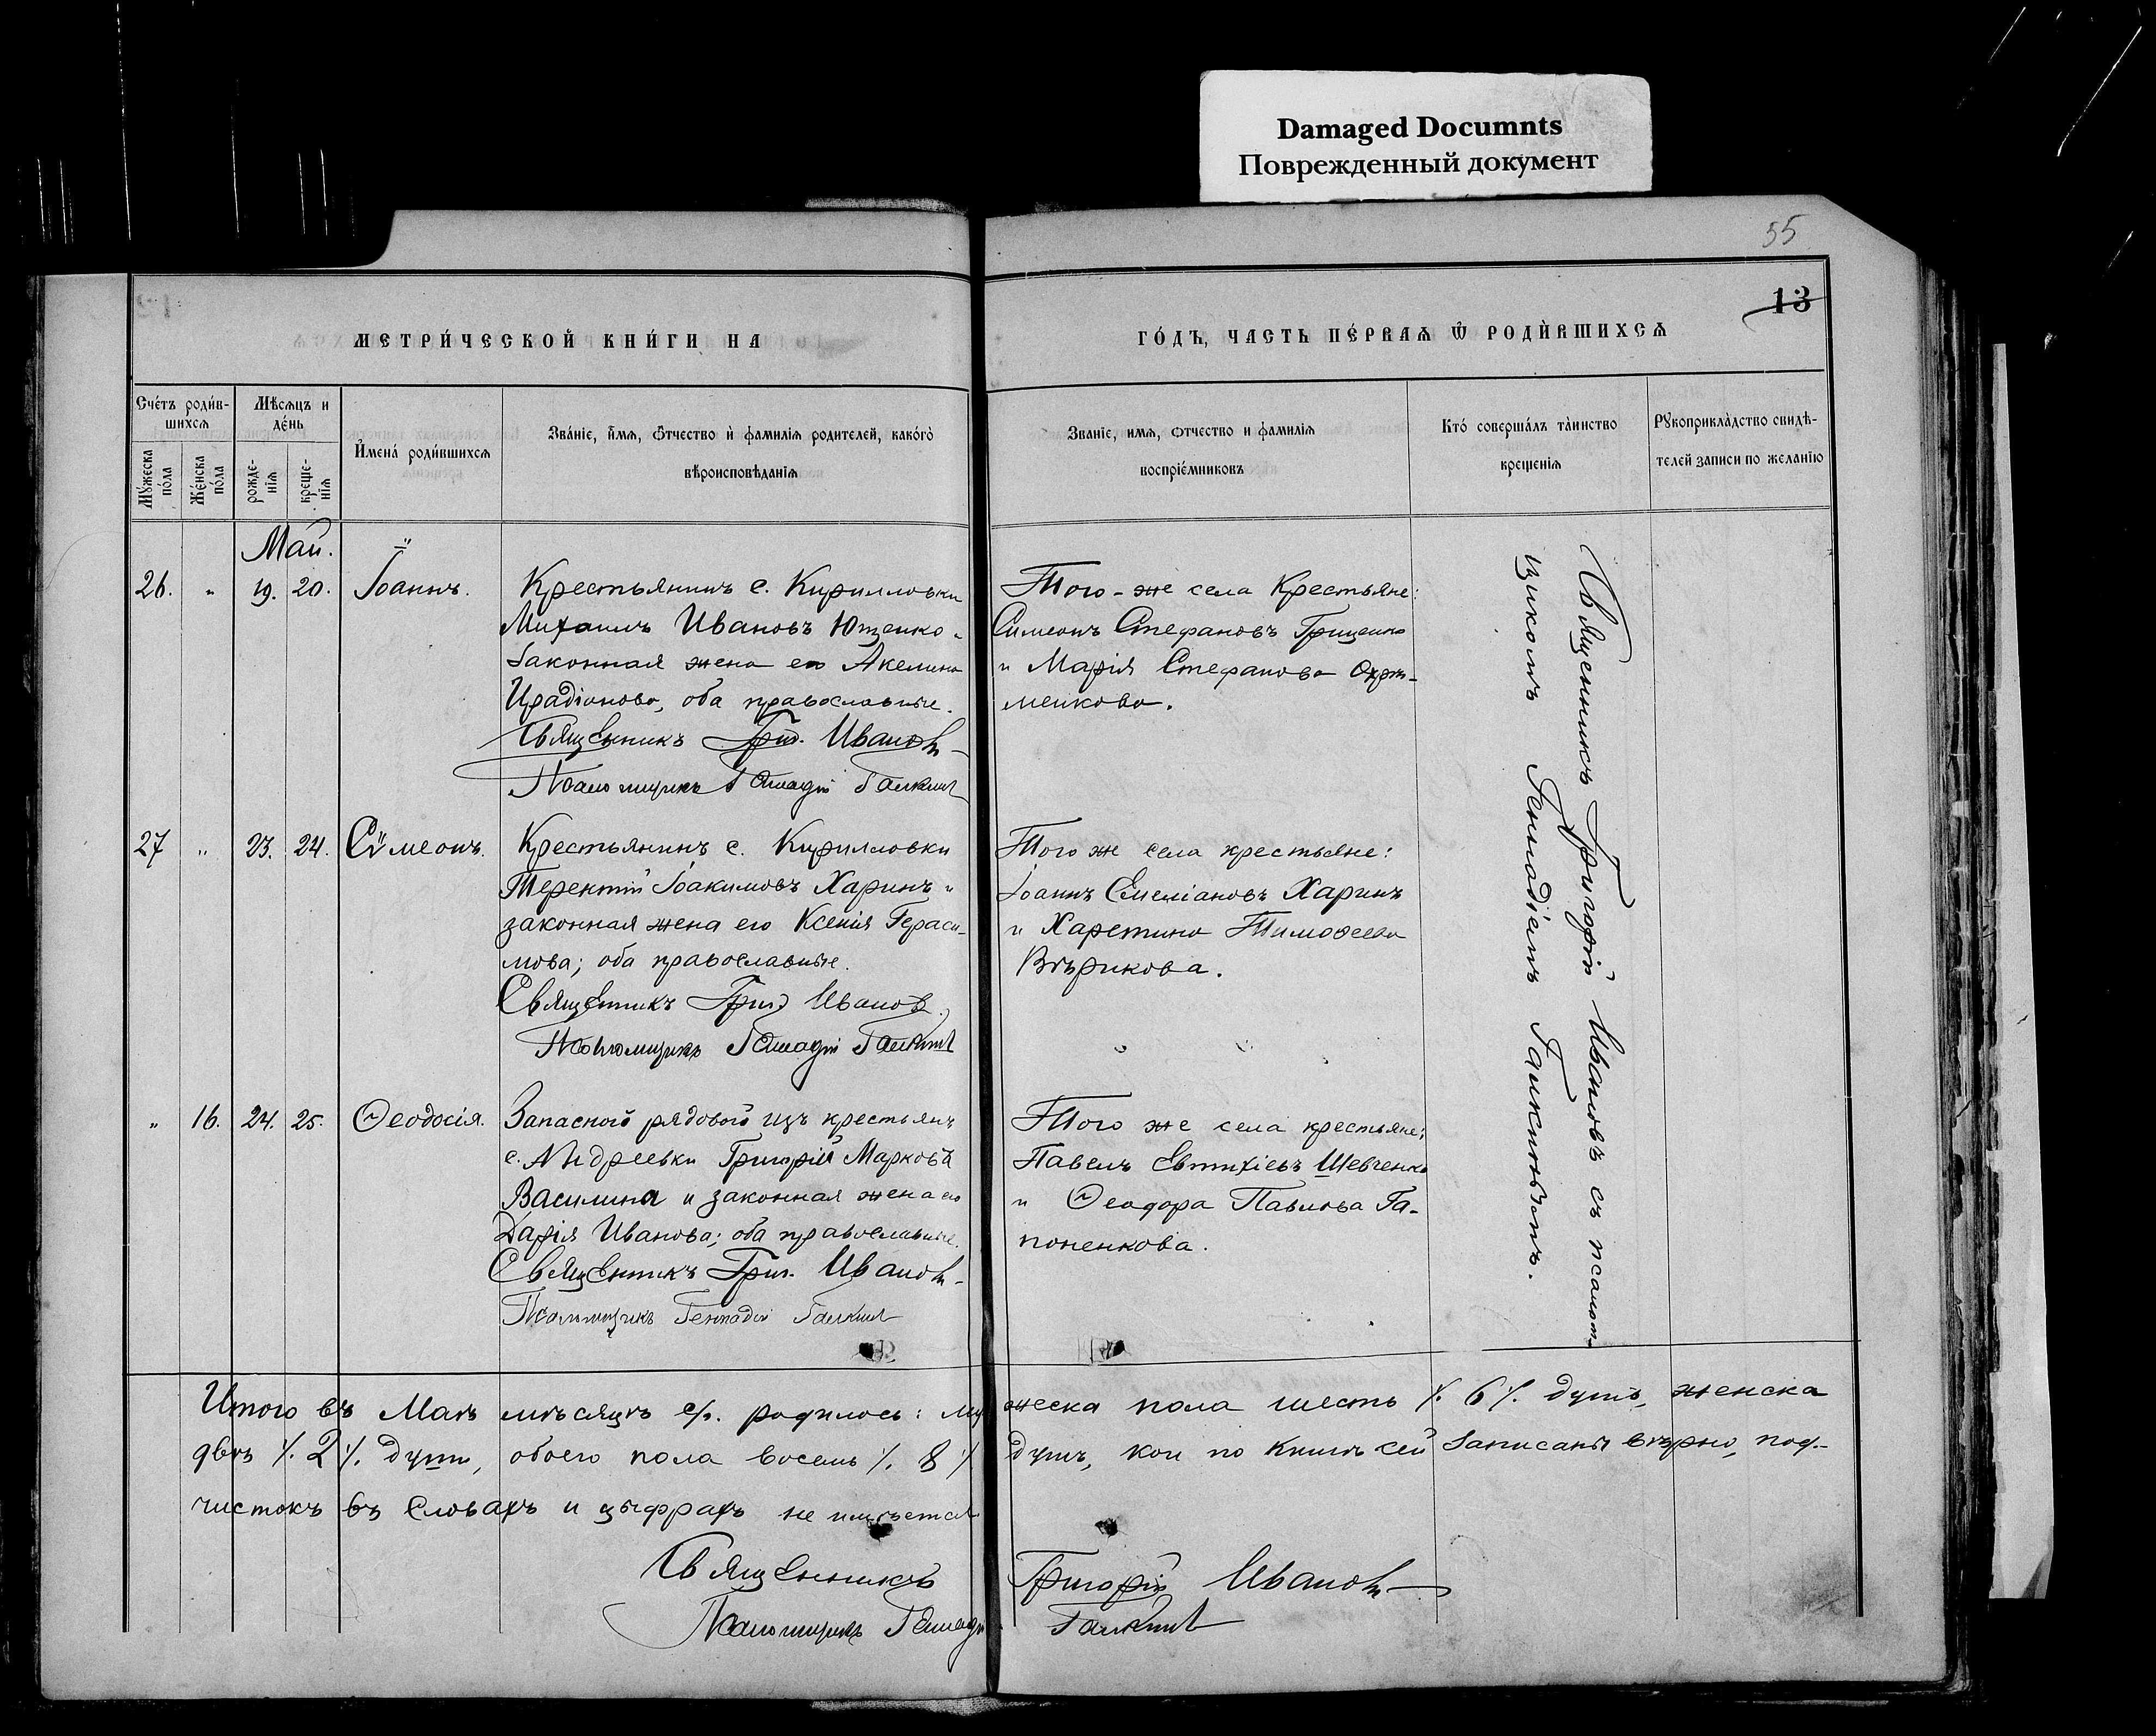 Damaged Documnts
Поврежденный документ
55
13
МЕТРИ́ЧЕСКОЙ КНИ́ГИ НА
ГО́ДЪ, ЧАСТЬ ПЕ́РВАѦ Ѿ РОДИ́ВШИХСѦ
Сче́тъ роди́в-
шихсѧ
Мѣсѧцъ и
де́нь
Му́жеска
по́ла
Же́нска
по́ла
рожде-
нїѧ
креще-
нїѧ
И҆мена́ роди́вшихсѧ
Зва́нїе, и҆́мѧ, ѻ҆́тчество и҆ фамилїѧ родителей, како́гѡ
вѣроисповѣданїѧ
Званїе, имѧ, ѻтчество и фамилїѧ
воспрїе́мниковъ
Кто́ соверша́лъ та́инство
крещенїѧ
Рꙋкоприкла́дство свидѣ-
телей записи по жела́нїю
Май.
26. " 19. 20. Іоаннъ.
Крестьянинъ с. Кирилловки
Михаилъ Ивановъ Ющенко
законная жена его Акелина
Ирадіонова, оба православные.
Священникъ Григ. Ивановъ
Псаломщикъ Геннадій
Того-же села Крестьяне:
Симеонъ Стефановъ Гриценко
и Марія Стефанова Охри-
менкова.
27 " 23. 24. Сѵмеонъ.
Крестьянинъ с. Кирилловки
Терентій Іоакимовъ Харинъ и
законная жена его Ксенія Гераси-
мова; оба православные.
Священникъ Григ. Ивановъ
Псаломщикъ Геннадій
Того же села крестьяне:
Іоаннъ Емеліановъ Харинъ
и Харетина Тимоѳеева
Вѣрикова.
" 16. 24. 25. Ѳеодосія.
Запасной рядовой изъ крестьянъ
с. Андреевки Григорій Марковъ
Василина и законная жена его
Дарія Иванова; оба православные.
Священникъ Григ. Ивановъ
Псаломщикъ Геннадій
Того же села крестьяне:
Павелъ Евтихіевъ Шевченко
и Ѳеодора Павлова Га-
поненкова.
Священникъ Григорій Ивановъ съ псалом-
щикомъ Геннадіемъ
Итого въ Маѣ мѣсяцѣ с/г. родилось: мужеска пола шесть ٪ 6 ٪ душъ, женска
двѣ ٪ 2 ٪ души, обоего пола восемь ٪ 8 ٪ душъ, кои по книгѣ сей записаны вѣрно, под-
чистокъ въ словахъ и цыфрахъ не имѣется
Священникъ Григорій Ивановъ
Псаломщикъ Геннадій